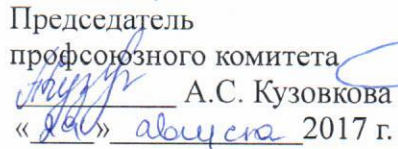 Председатель
профсоюзного комитета
А.С. Кузовкова
« » августа 2017 г.